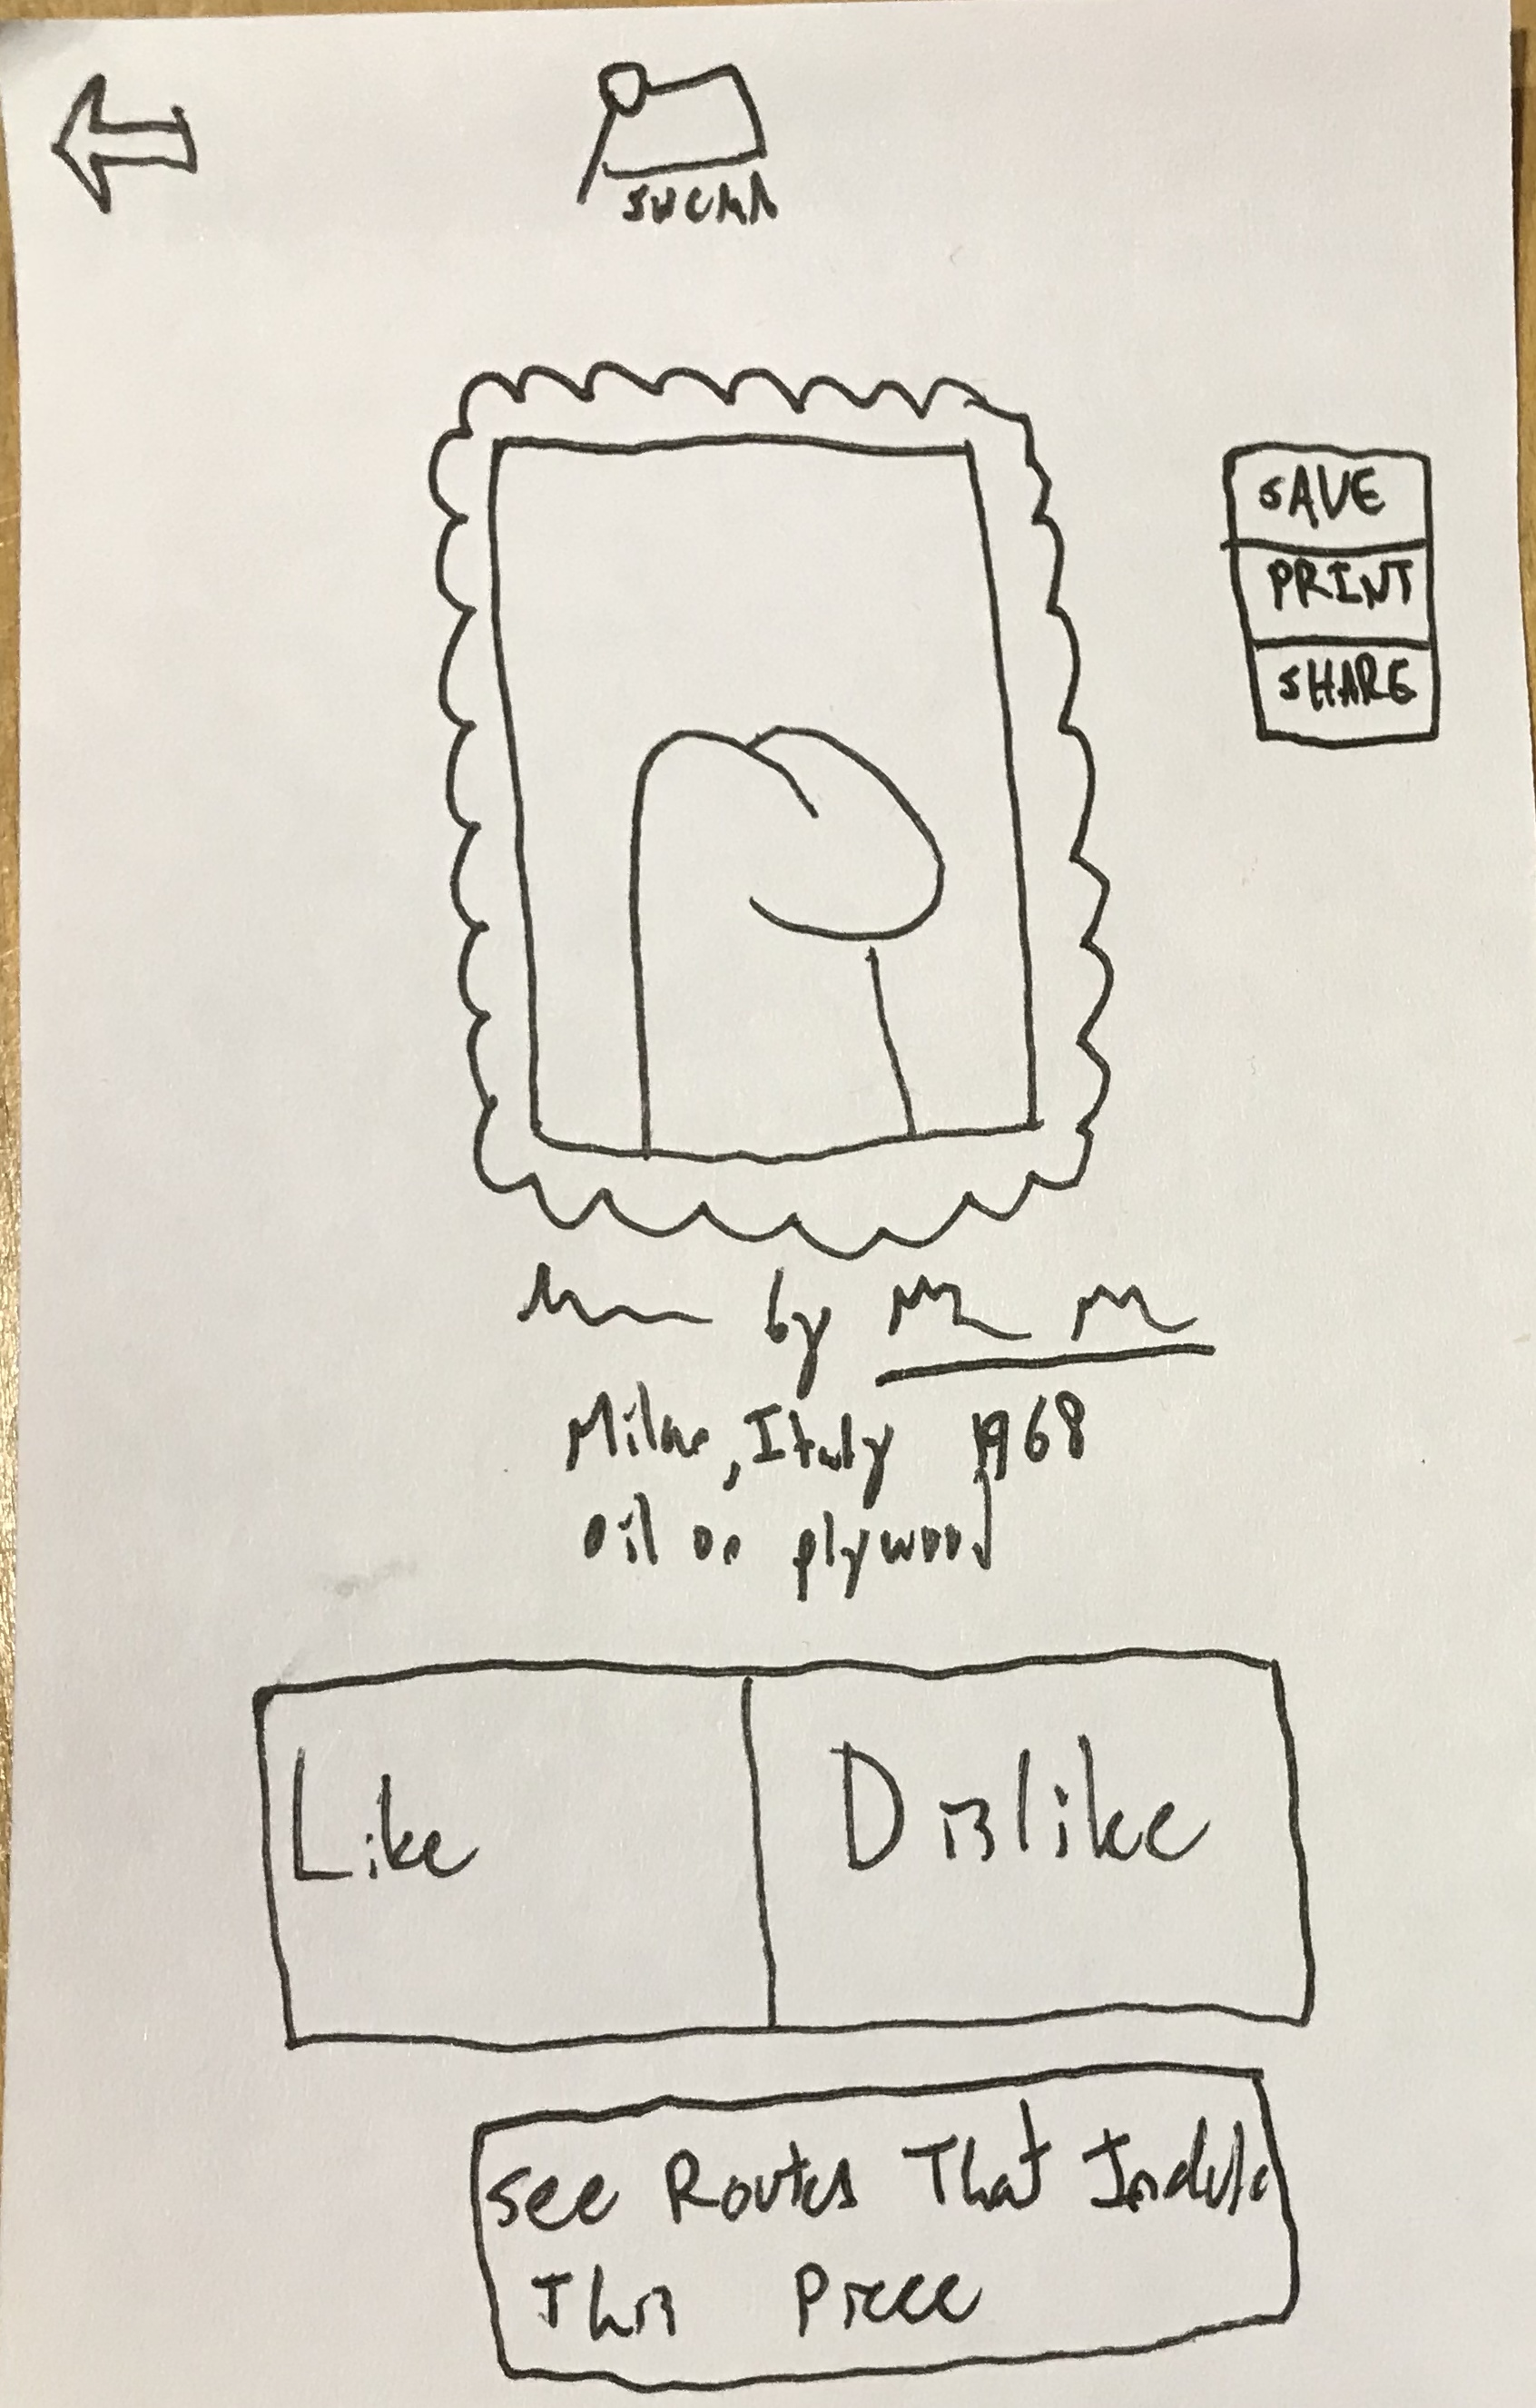 SAVE
PRINT
SHARE
by
Milan, Italy 1968
oil on plywood
Like
Dislike
See Routes That Include
This Piece